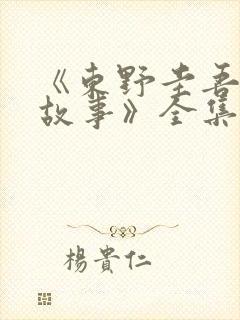 《東野圭吾
故事》全集
楊貴仁